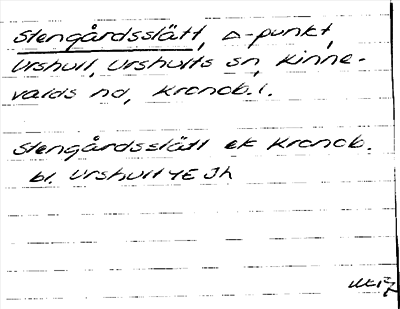 Stengårdsslätt, △-punkt,
Urshult, Urshults sn, Kinne-
valds hd, Kronob. l.
Stengårdsslätt ek Kronob.
bl. Urshult 4E Jh